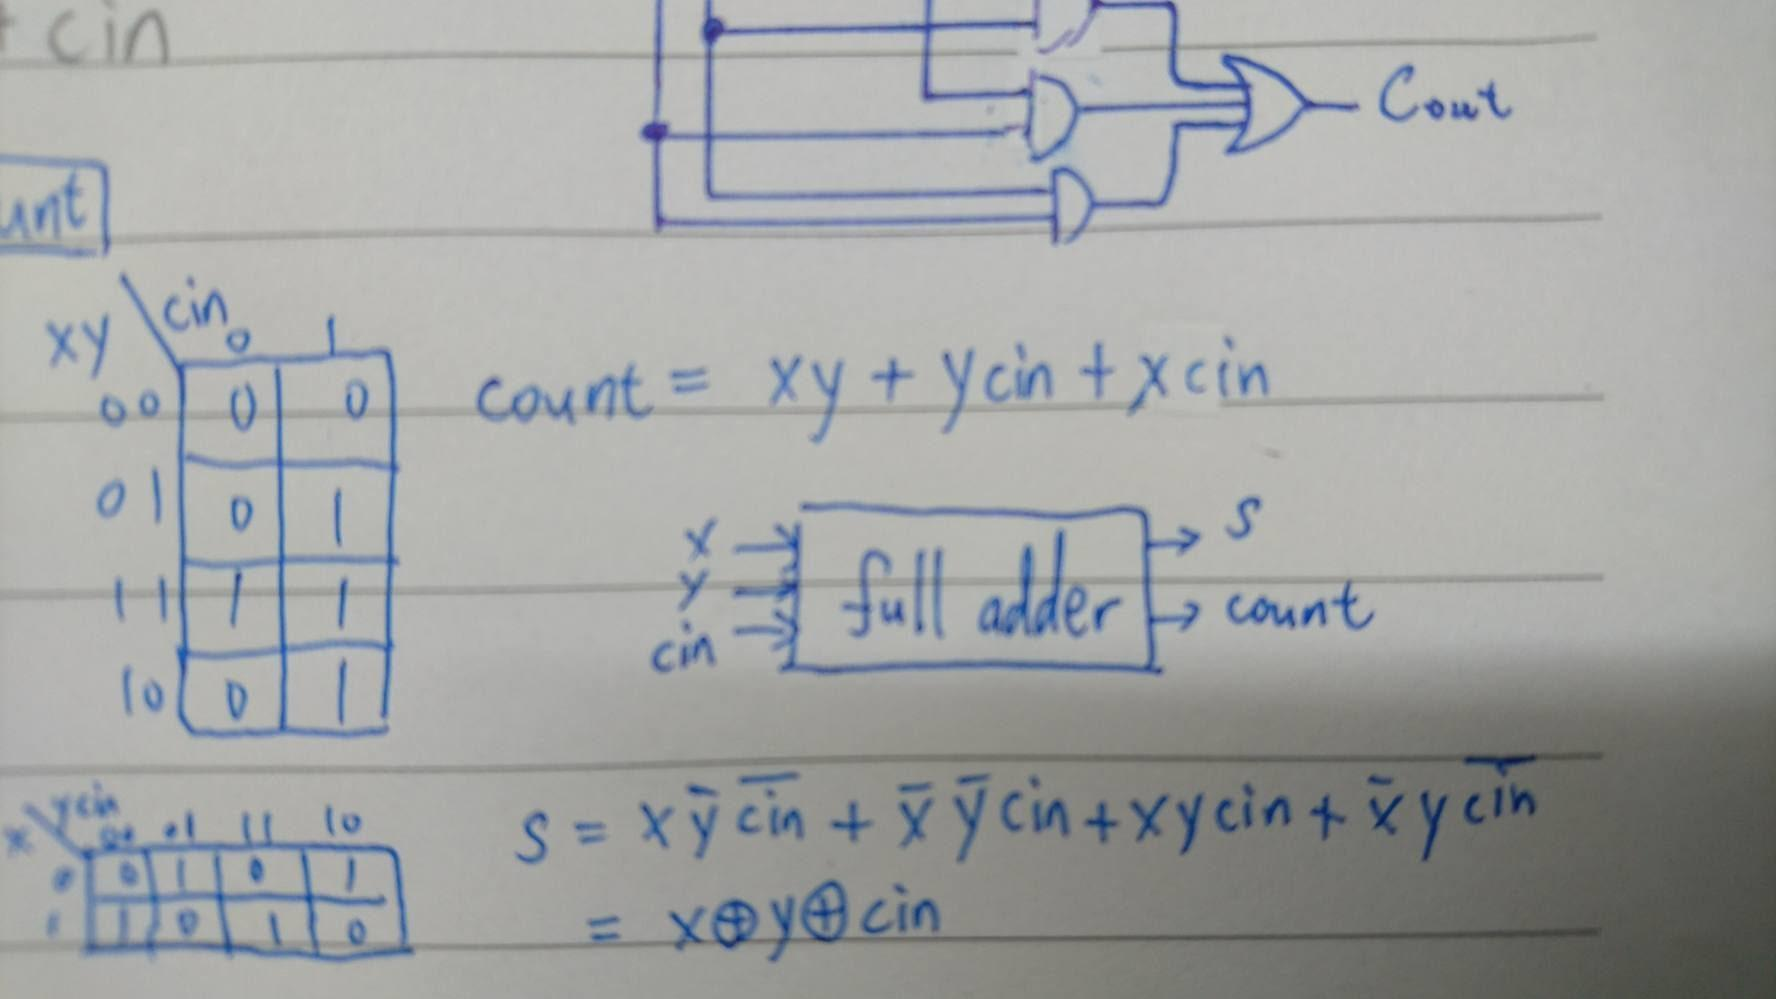 + cin
Cout
unt
xy \ cin 0 1
00 0 0
01 0 1
11 1 1
10 0 1
count = xy + ycin + xcin
x
y
cin
full adder
s
count
x \ ycin 00 01 11 10
0 0 1 0 1
1 1 0 1 0
S = x ȳ c̅i̅n̅ + x̄ ȳ cin + xycin + x̄ y c̅i̅n̅
= x⊕y⊕cin